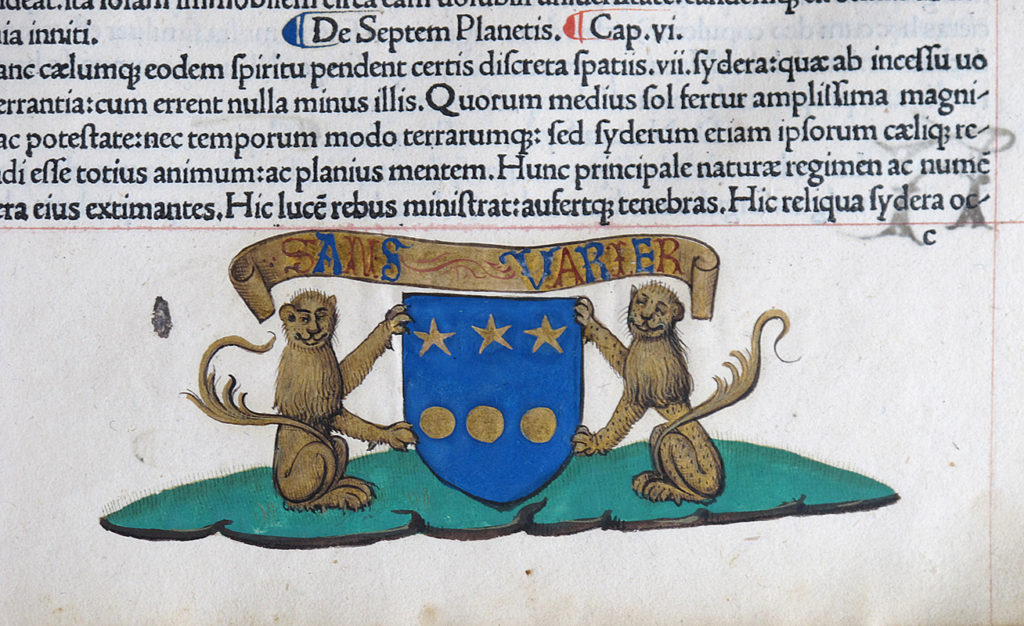 ia inniti. De Septem Planetis. Cap.vi.
anc cælumq; eodem ſpiritu pendent certis diſcreta ſpatiis.vii.ſydera:quæ ab inceſſu uo
errantia:cum errent nulla minus illis.Quorum medius ſol fertur ampliſſima magni-
ac poteſtate:nec temporum modo terrarumq;: ſed ſyderum etiam ipſorum cæliq; re-
di eſſe totius animum:ac planius mentem.Hunc principale naturæ regimen ac numē
era eius extimantes.Hic lucē rebus miniſtrat:aufertq; tenebras.Hic reliqua ſydera oc-
c
SANS VARIER